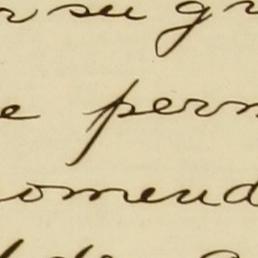 r su gr
e perm
omend